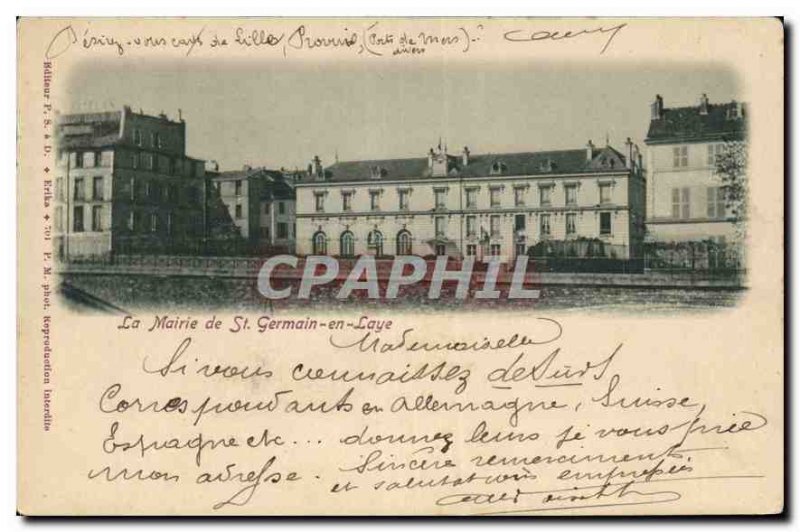 Désirez-vous cartes de Lille, Provins, (Ports de Mers)
divers
Editeur P. S. à D. ✦ Erika ✦ 701 P. M. phot. Reproduction interdite
CPAPHIL
La Mairie de St. Germain-en-Laye
Mademoiselle
Si vous connaissez de surs
Correspondants en Allemagne, Suisse,
Espagne etc... donnez leurs je vous prie
mon adresse. Sincère remerciments
et salutations empressées